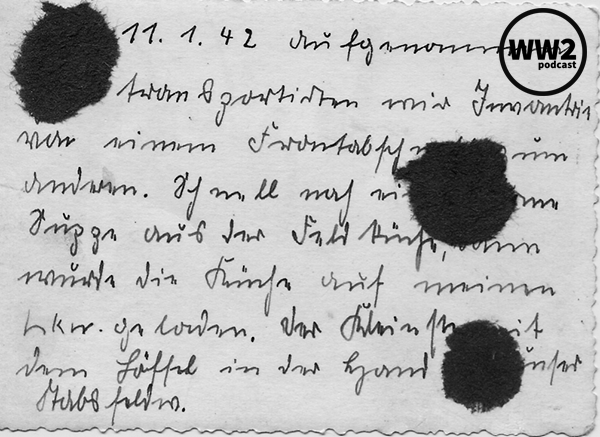 11. 1. 42 aufgenommen
WW2
podcast
transportierten wir Infantrie
von einem Frontabschn zum
anderen. Schnell noch ei
Suppe aus der Feldküche, dann
wurde die Küche auf meinen
Lkw. geladen. Der Kleinste mit
dem Löffel in der Hand unser
Stabsfeldw.